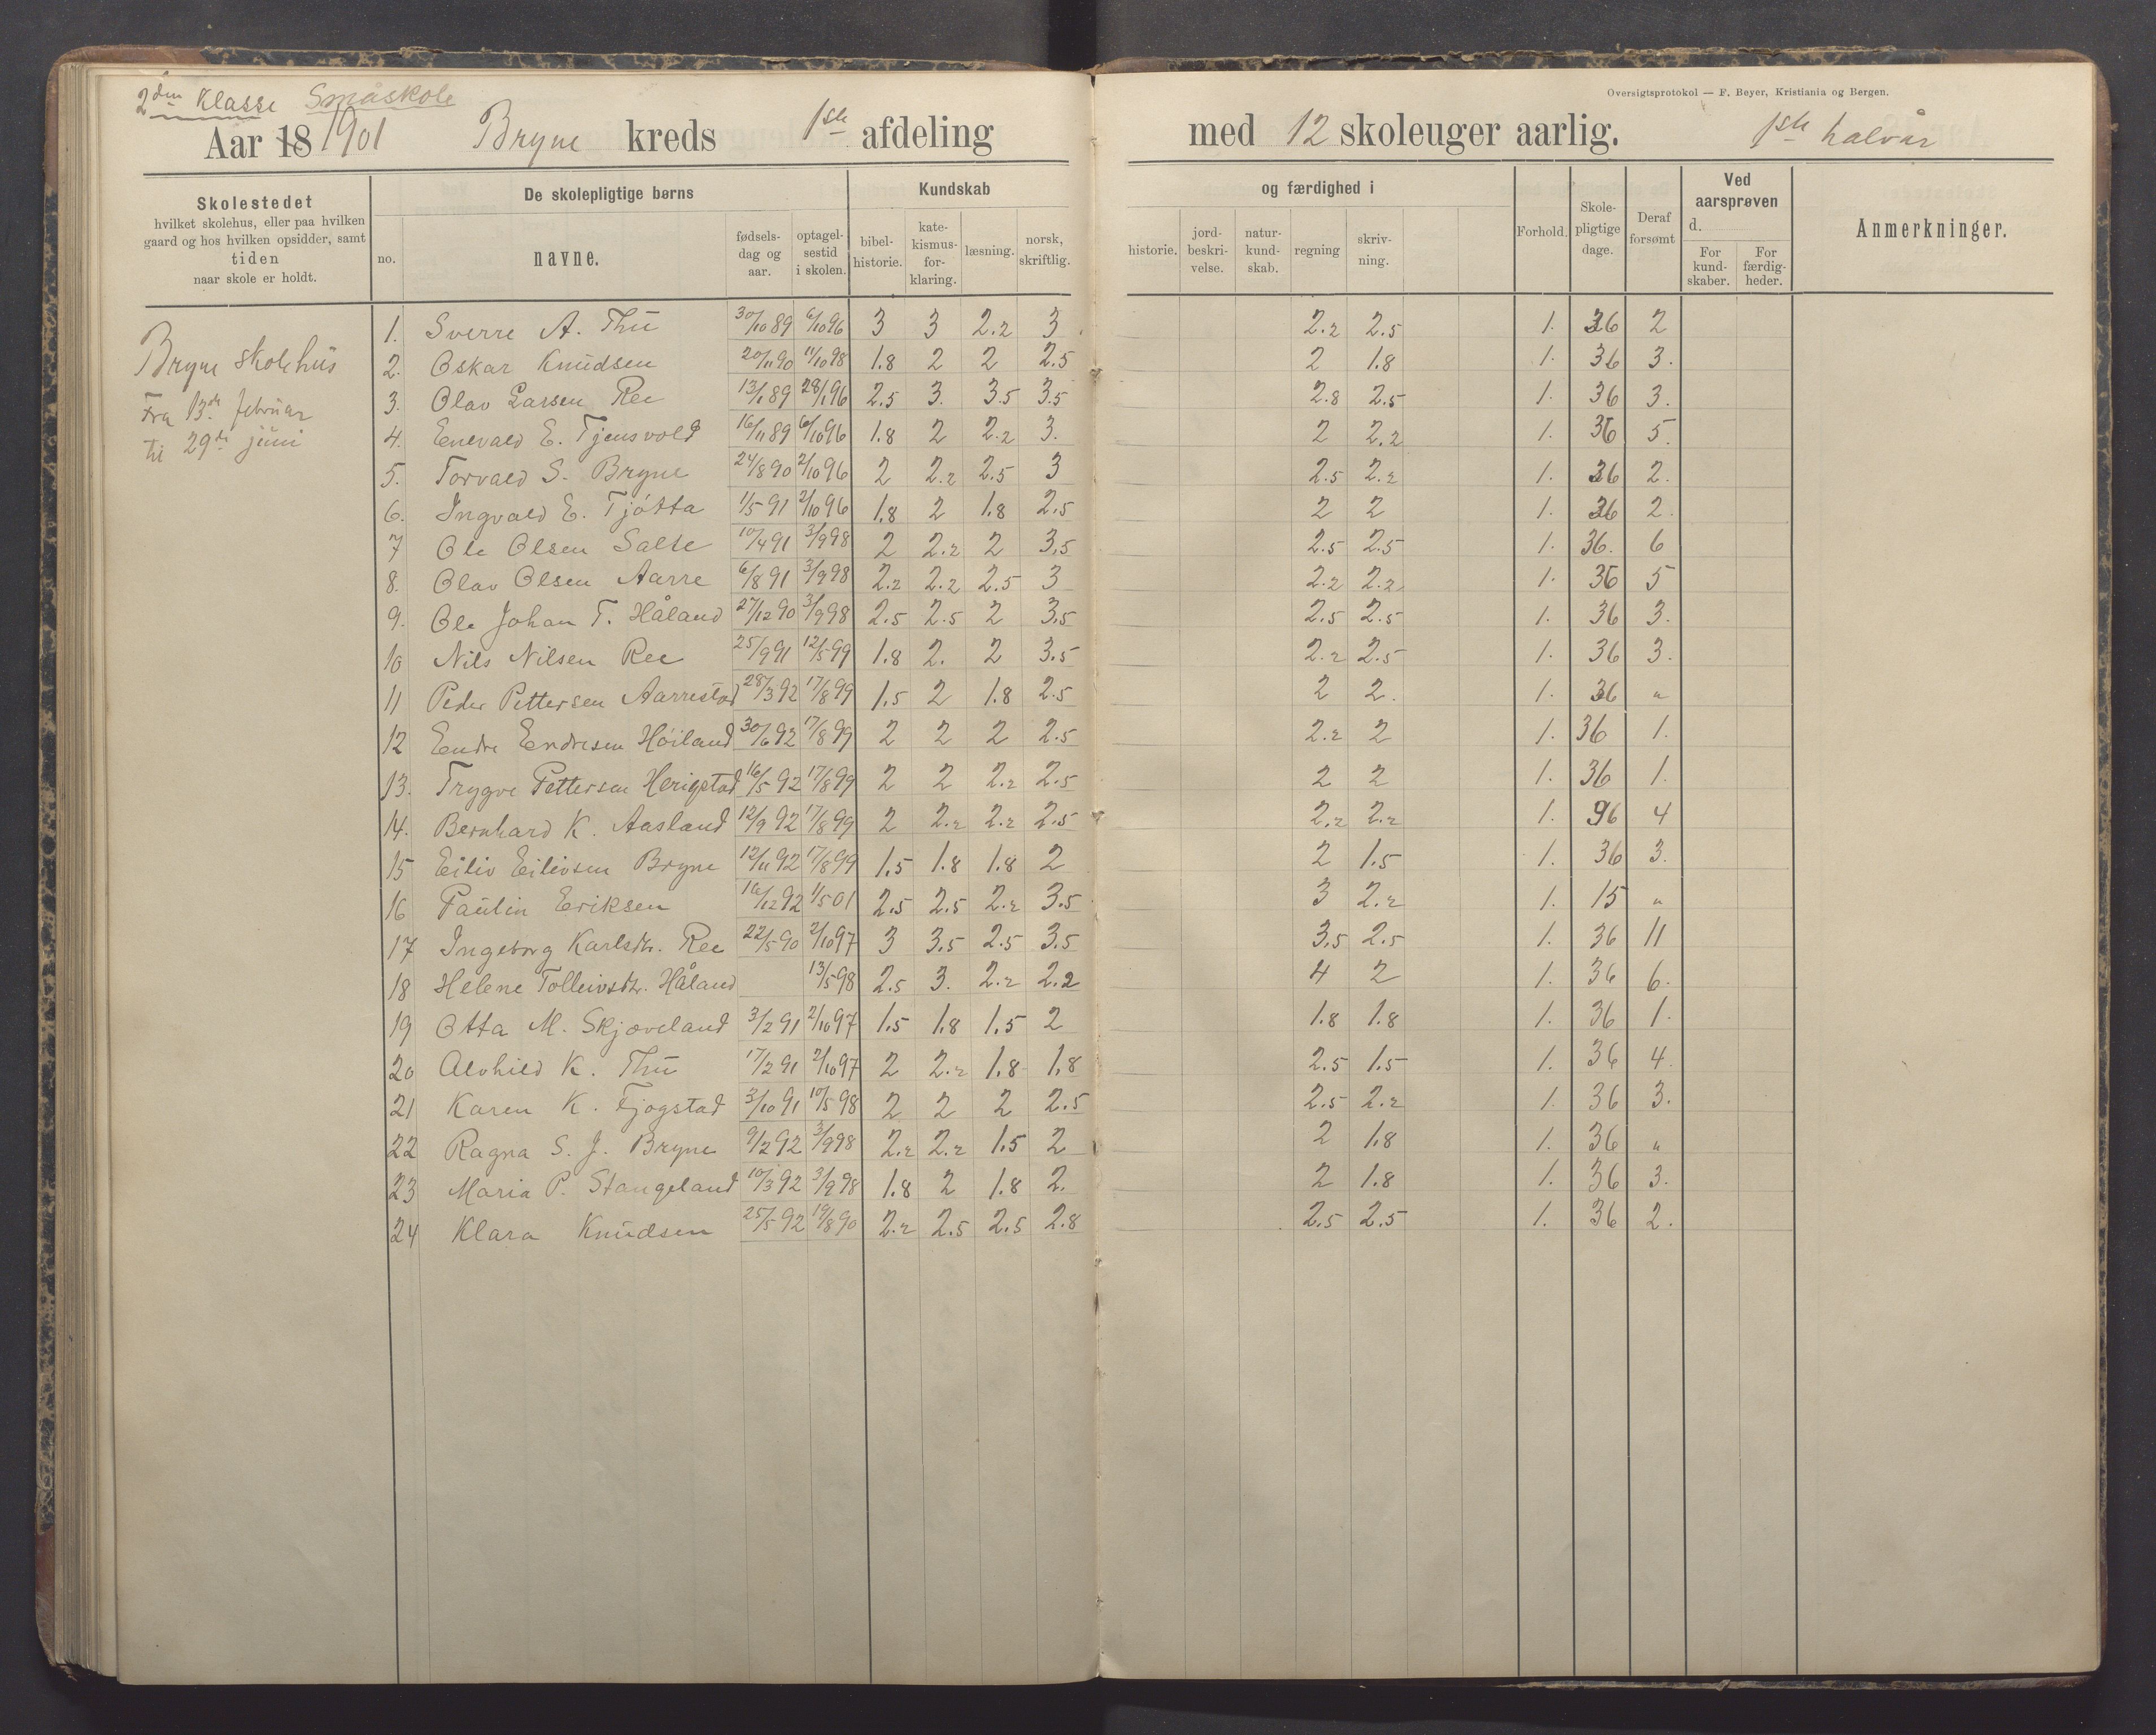 2den Klasse Småskole
Oversigtsprotokol — F. Beyer, Kristiania og Bergen.
Aar 18 1901 Bryne kreds 1ste afdeling med 12 skoleuger aarlig. 1ste halvår
Skolestedet
hvilket skolehus, eller paa hvilken
gaard og hos hvilken opsidder, samt
tiden
naar skole er holdt.
De skolepligtige børns
no. navne. fødsels-dag og aar. optagel-sestid i skolen.
Kundskab og færdighed i
bibel-historie. kate-kismus-for-klaring. læsning. norsk, skriftlig. historie. jord-beskri-velse. natur-kund-skab. regning skriv-ning.
Forhold. Skole-pligtige dage. Deraf forsømt
Ved aarsprøven d.
For kund-skaber. For færdig-heder.
Anmerkninger.
Bryne skolehüs
Fra 13de februar
til 29de jüni
1. Sverre A. Thü 30/10 89 6/10 96 3 3 2.2 3 2.2 2.5 1. 36 2
2. Oskar Knüdsen 20/11 90 11/10 98 1.8 2 2 2.5 2 1.8 1. 36 3.
3. Olav Larsen Ree 13/1 89 28/1 96 2.5 3. 3.5 3.5 2.8 2.5 1. 36 3.
4. Enevald E. Tjensvold 16/11 89 6/10 96 1.8 2 2.2 3. 2 2.2 1. 36 5.
5. Torvald S. Bryne 24/8 90 2/10 96 2 2.2 2.5 3 2.5 2.2 1. 36 2.
6. Ingvald E. Tjötta 1/5 91 2/10 96 1.8 2 1.8 2.5 2 2 1. 36 2.
7 Ole Olsen Salte 10/4 91 3/9 98 2 2.2 2 3.5 2.5 2.5 1. 36. 6
8. Olav Olsen Aarre 6/8 91 3/9 98 2.2 2.2 2.5 3 2.2 2.2 1. 36 5
9. Ole Johan T. Håland 27/12 90 3/9 98 2.5 2.5 2 3.5 2.5 2.5 1. 36 3.
10 Nils Nilsen Ree 25/9 91 12/5 99 1.8 2. 2 3.5 2.2 2.5 1. 36 3.
11 Peder Pettersen Aarrestad 28/3 92 17/8 99 1.5 2 1.8 2.5 2 2. 1. 36 "
12 Endre Endresen Höiland 30/6 92 17/8 99 2 2 2 2.5 2.2 2 1. 36 1.
13. Trygve Pettersen Herigstad 16/5 92 17/8 99 2 2 2.2 2.5 2 2 1. 36 1.
14. Bernhard K. Aasland 12/9 92 17/8 99 2 2.2 2.2 2.5 2.2 2.2 1. 96 4
15 Eiliv Eilivsen Bryne 12/11 92 17/8 99 1.5 1.8 1.8 2 2 1.5 1. 36 3.
16 Paülin Eriksen 16/12 92 1/5 01 2.5 2.5 2.2 3.5 3 2.2 1. 15 "
17 Ingeborg Karlsdtr. Ree 22/5 90 2/10 97 3 3.5 2.5 3.5 3.5 2.5 1. 36 11
18 Helene Tolleivsdtr. Håland 13/5 98 2.5 3. 2.2 2.2 4 2 1. 36 6.
19 Otta M. Skjæveland 3/2 91 2/10 97 1.5 1.8 1.5 2 1.8 1.8 1. 36 1.
20 Alvhild K. Thü 17/2 91 2/10 97 2 2.2 1.8 1.8 2.5 1.5 1. 36 4.
21 Karen K. Fjogstad 3/10 91 10/5 98 2 2 2 2.5 2.5 2.2 1. 36 3.
22 Ragna S. J. Bryne 9/2 92 3/9 98 2.2 2.2 1.5 2 2 1.8 1. 36 "
23 Maria P. Stangeland 10/3 92 3/9 98 1.8 2 1.8 2. 2 1.8 1. 36 3.
24 Klara Knüdsen 25/5 92 19/8 90 2.2 2.5 2.5 2.8 2.5 2.5 1. 36 2.